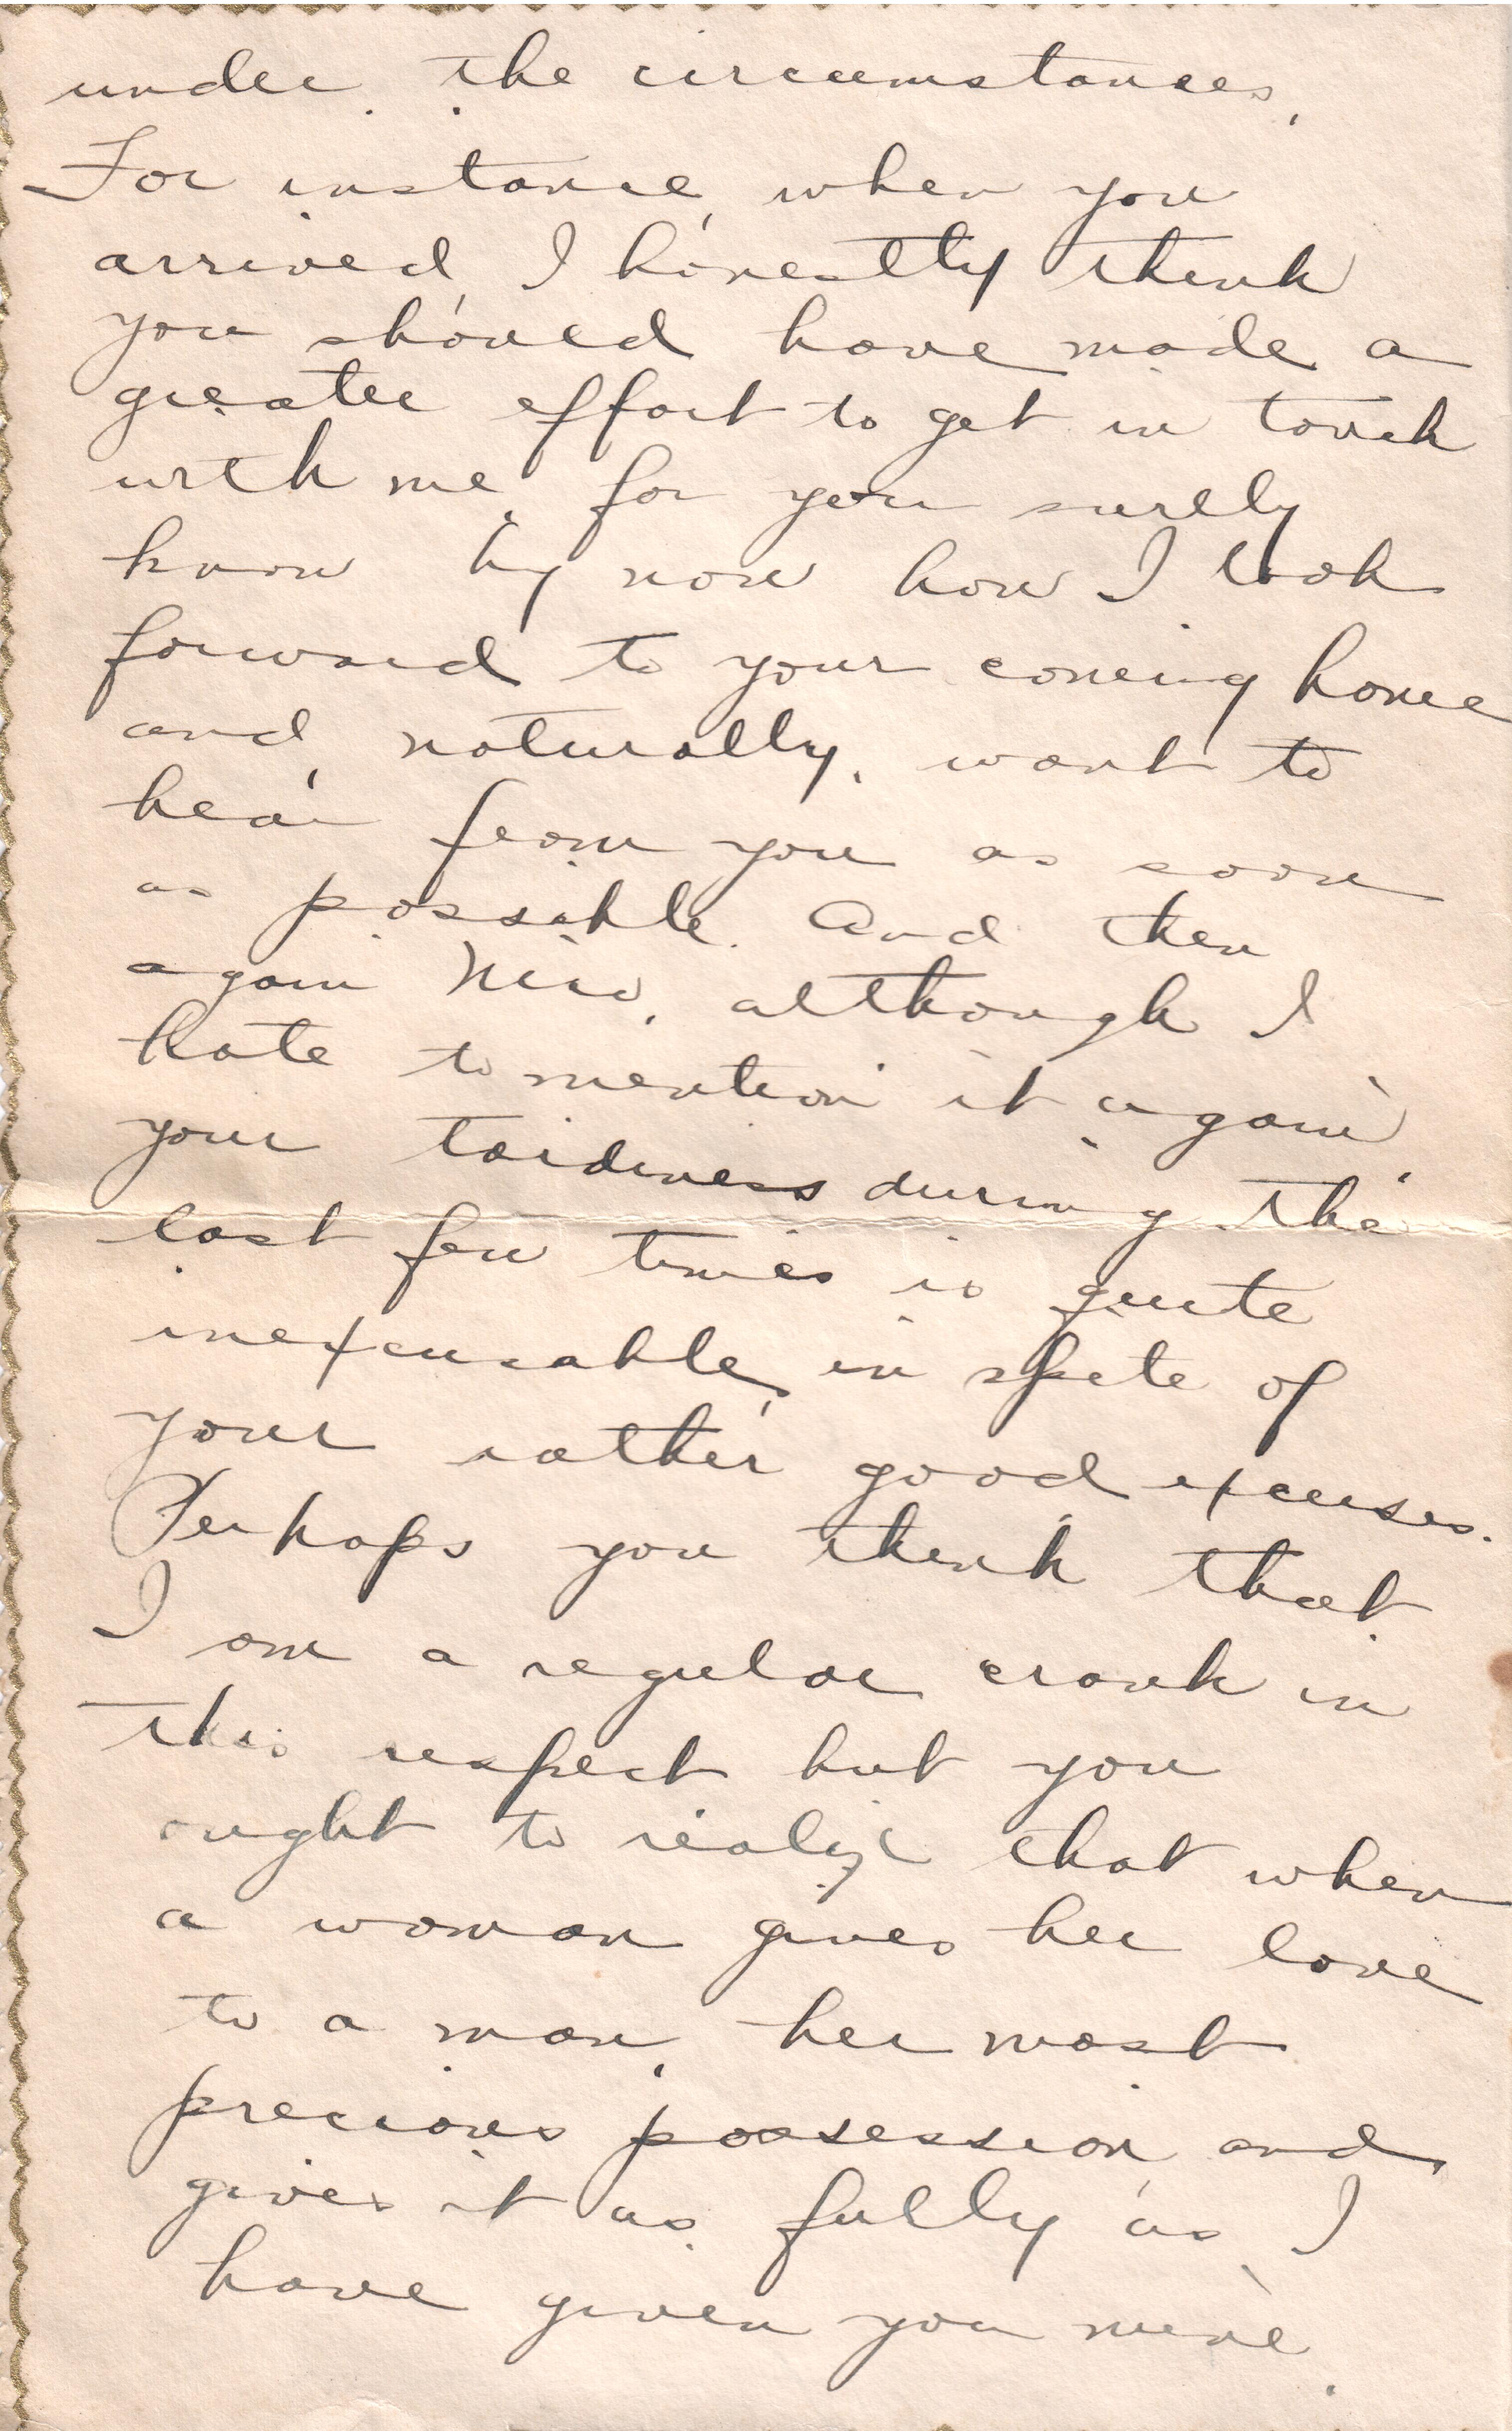 under the circumstances.
For instance, when you
arrived, I honestly think
you should have made a
greater effort to get in touch
with me, for you surely
know by now how I look
forward to your coming home
and, naturally, want to
hear from you as soon
as possible. And then
again, although I
hate to mention it again,
your tardiness during the
last few times is quite
inexcusable, in spite of
your rather good excuses.
Perhaps you think that
I am a regular crank in
this respect but you
ought to realize that when
a woman gives her love
to a man, her most
precious possession and,
gives it as fully as I
have given you mine.